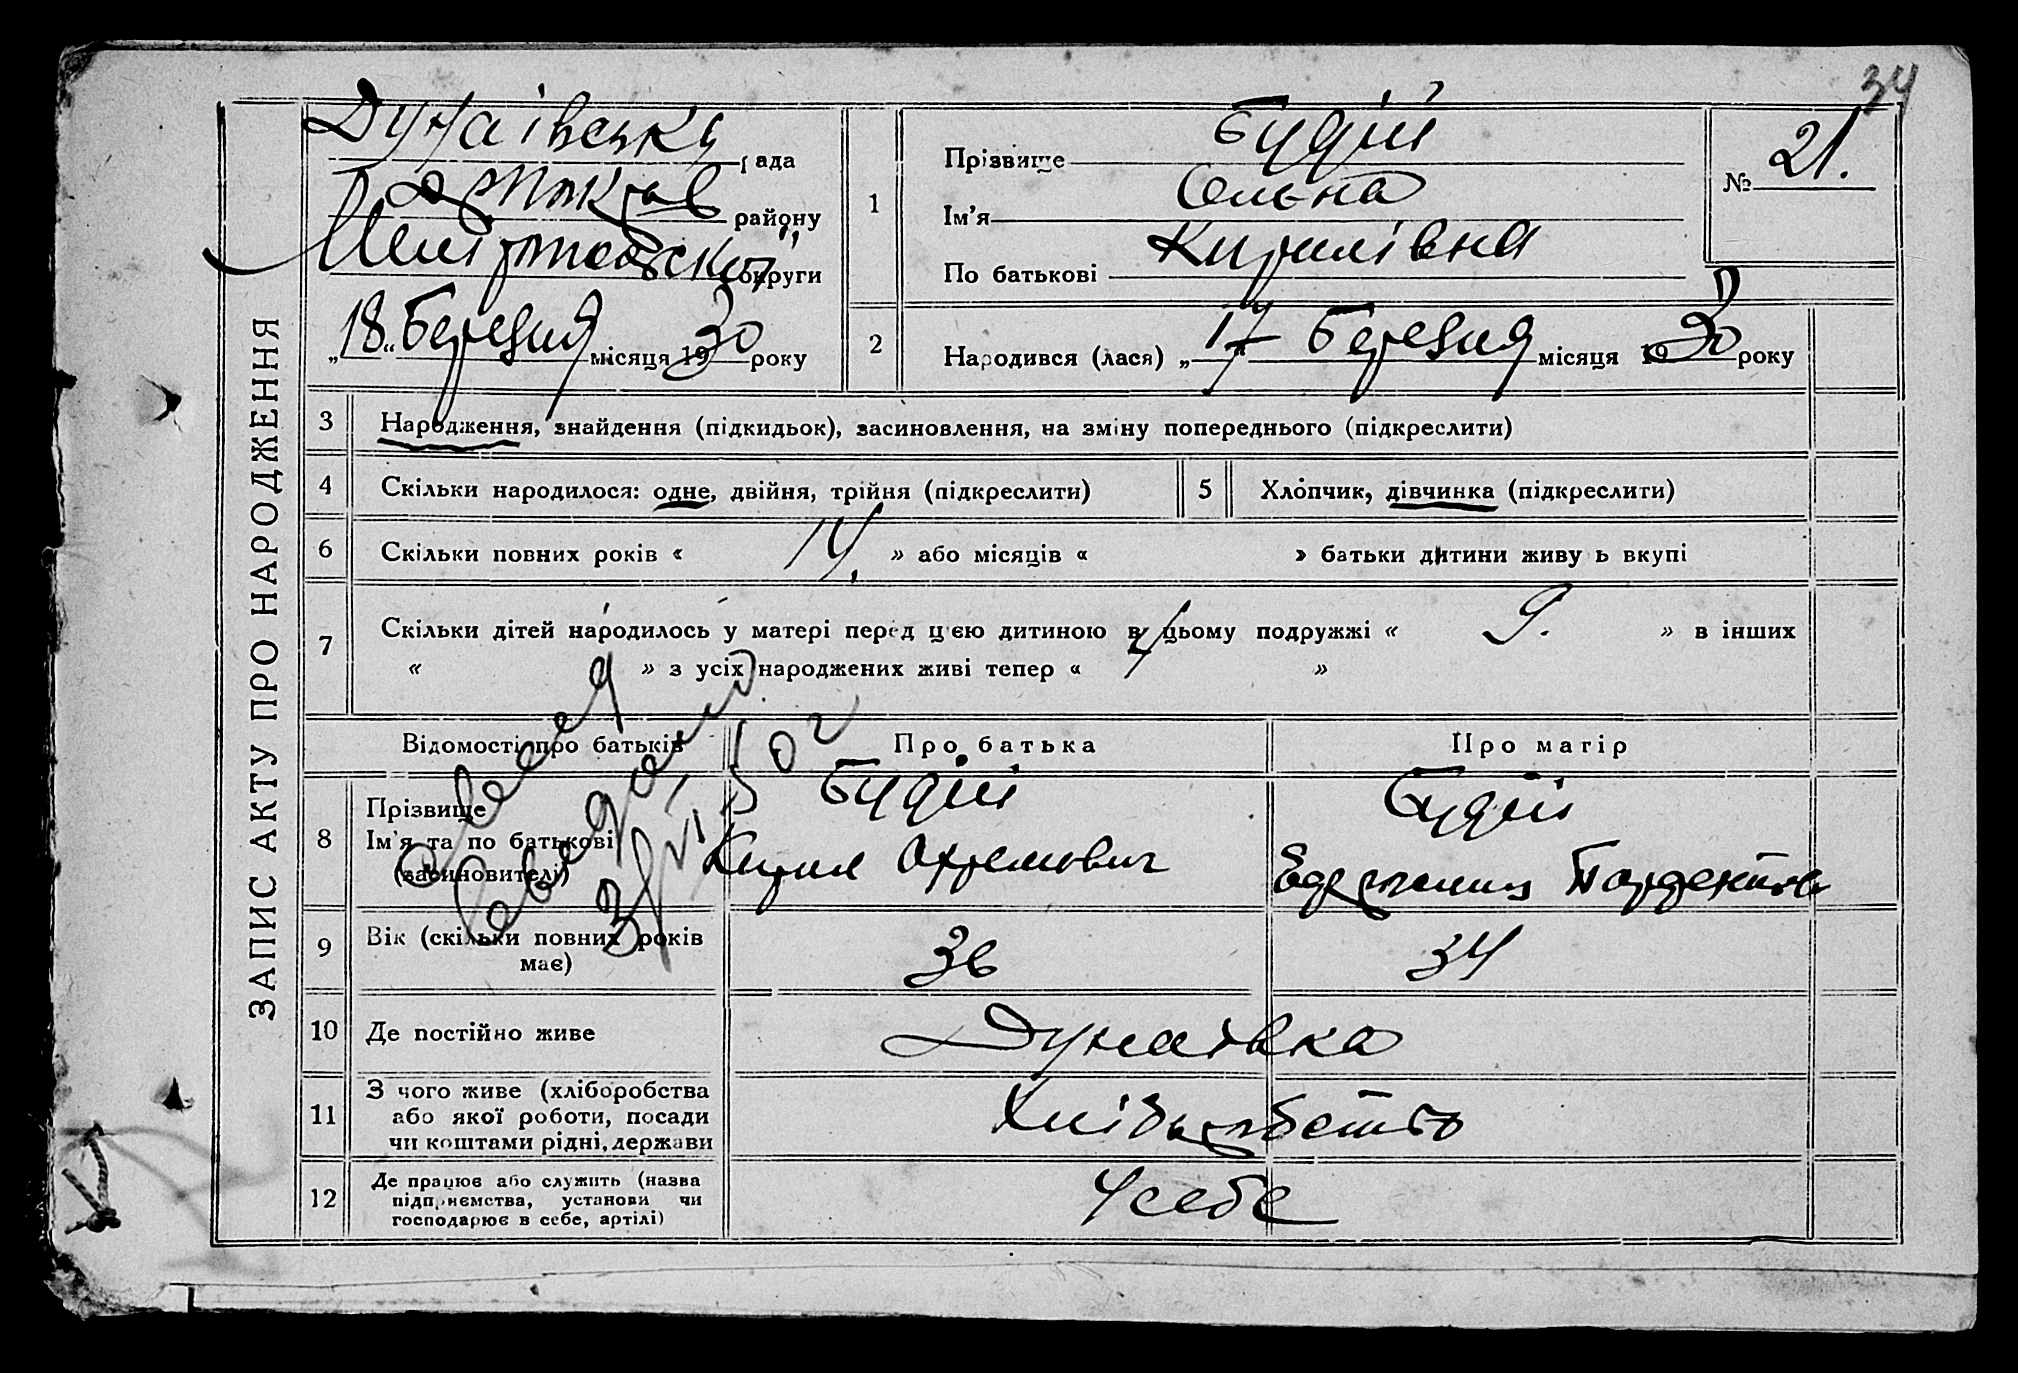 34
ЗАПИС АКТУ ПРО НАРОДЖЕННЯ
Дунаівська рада
району
Мелітопольскої округи
„18“ Березня місяця 1930 року
1
Прізвище Будій
Ім'я Ольна
По батькові Кирилівна
№ 21.
2
Народився (лася) „17“ Березня місяця 1930 року
3 Народження, знайдення (підкидьок), засиновлення, на зміну попереднього (підкреслити)
4 Скільки народилося: одне, двійня, трійня (підкреслити) 5 Хлопчик, дівчинка (підкреслити)
6 Скільки повних років « 14. » або місяців « » батьки дитини живу ь вкупі
7 Скільки дітей народилось у матері перед цією дитиною в цьому подружжі « 9. » в інших
« » з усіх народжених живі тепер « 4 »
Відомості про батьків Про батька Про матір
8 Прізвище
Ім'я та по батькові
(засиновителі)
Будій
Кирил Охремович
Будій
50 г
9 Вік (скільки повних років має) 36 34
10 Де постійно живе Дунаівка
11 З чого живе (хліборобства
або якої роботи, посади
чи коштами рідні, держави
Хліборобство
12 Де працює або служить (назва
підприємства, установи чи
господарює в себе, артілі)
Усебе